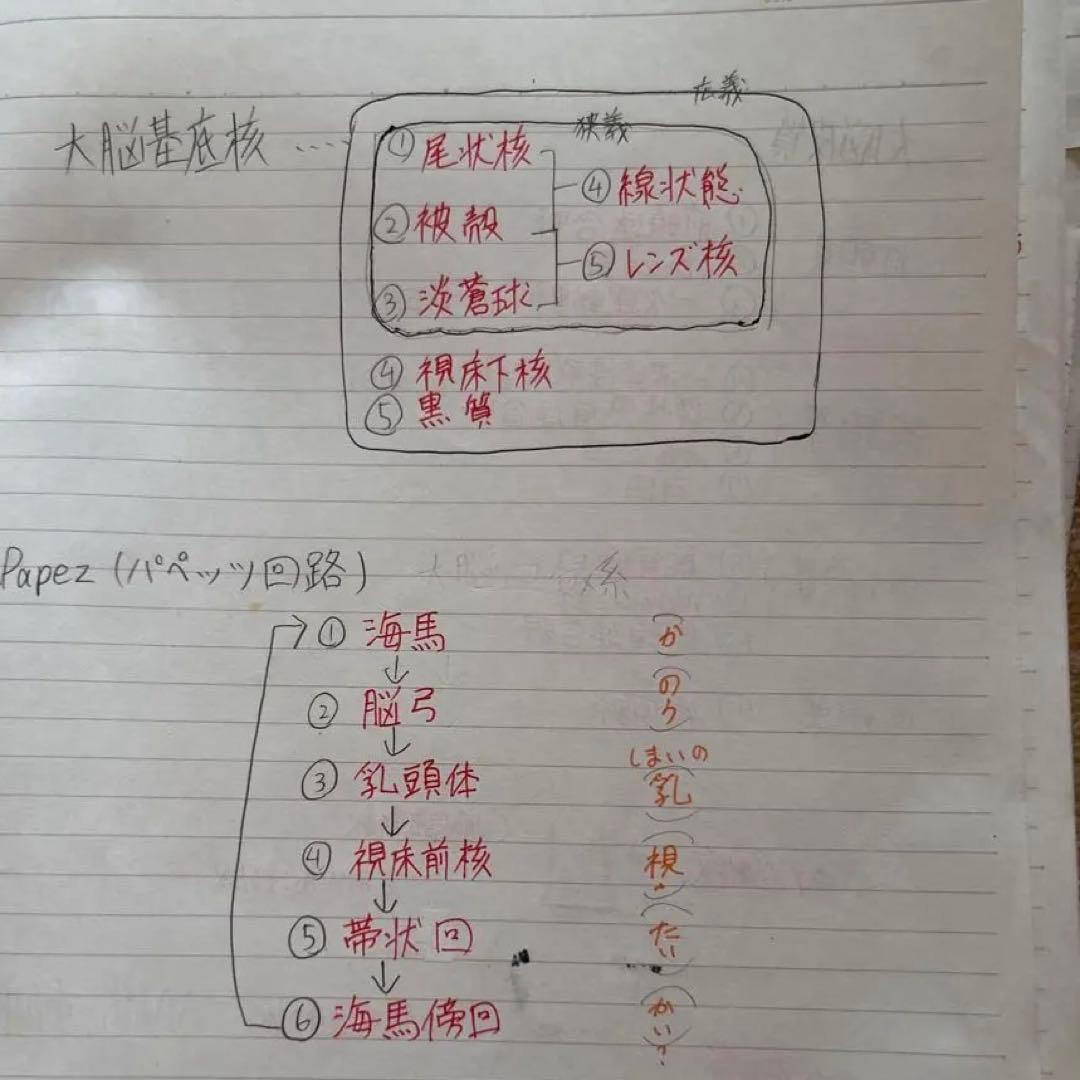 広義
大脳基底核 ‥‥
狭義
① 尾状核
④ 線状態
② 被殻
⑤ レンズ核
③ 淡蒼球
④ 視床下核
⑤ 黒質
Papez (パペッツ回路)
① 海馬 (か)
↓
② 脳弓 (のう)
↓
③ 乳頭体 しまいの(乳)
↓
④ 視床前核 (視)
↓
⑤ 帯状回 (たい)
↓
⑥ 海馬傍回 (かい?)